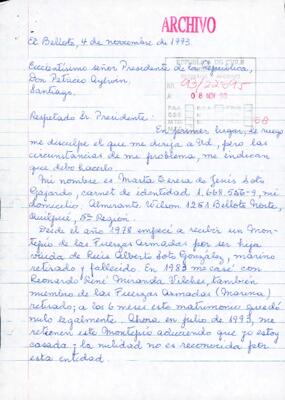 ARCHIVO
El Belloto, 4 de noviembre de 1993.
Excelentísimo señor Presidente de la República,
Don Patricio Aylwin,
Santiago.
93/22695
08 NOV 93
Respetado Sr. Presidente:
En primer lugar, le ruego
me disculpe el que me dirija a Ud, pero las
circunstancias de mi problema, me indican
que debo hacerlo.
Mi nombre es María Teresa de Jesús Soto
Gajardo, carnet de identidad 1.668.556-9, mi
domicilio Almirante Wilson 1251 Belloto Norte,
Quilpué, 5ª Región.
Desde el año 1978 empecé a recibir un Mon-
tepío de las Fuerzas Armadas por ser hija
viuda de Luis Alberto Soto González, marino
retirado y fallecido. En 1983 me casé con
Leonardo René Miranda Vilches, también
miembro de las Fuerzas Armadas (Marina)
retirado; a los 6 meses este matrimonio quedó
nulo legalmente. Ahora en julio de 1993, me
retienen este Montepío aduciendo que yo estoy
casada; la nulidad no es reconocida por
esta entidad.